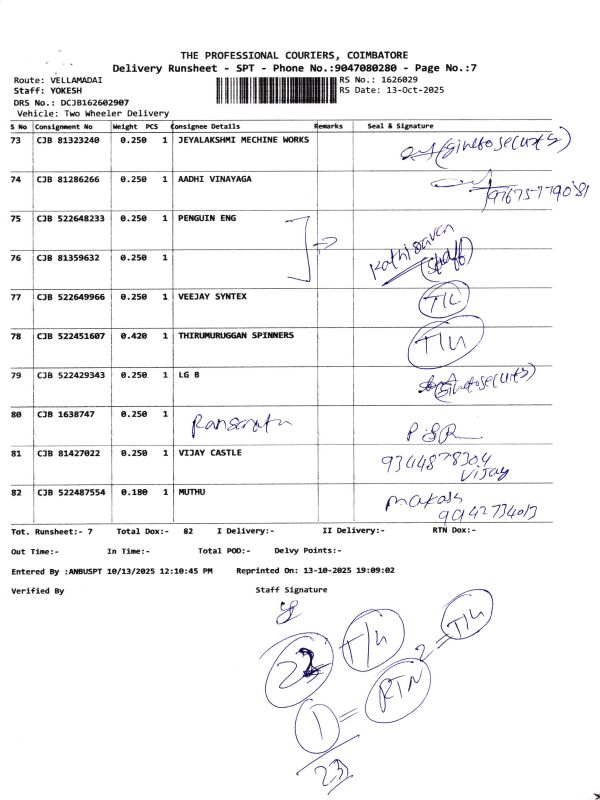 THE PROFESSIONAL COURIERS, COIMBATORE
Delivery Runsheet - SPT - Phone No.:9047080280 - Page No.:7
Route: VELLAMADAI
RS No.: 1626029
Staff: YOKESH
RS Date: 13-Oct-2025
DRS No.: DCJB162602907
Vehicle: Two Wheeler Delivery
S No Consignment No Weight PCS Consignee Details Remarks Seal & Signature
73 CJB 81323240 0.250 1 JEYALAKSHMI MECHINE WORKS
74 CJB 81286266 0.250 1 AADHI VINAYAGA
75 CJB 522648233 0.250 1 PENGUIN ENG
76 CJB 81359632 0.250 1
(Staff)
77 CJB 522649966 0.250 1 VEEJAY SYNTEX T/L
78 CJB 522451607 0.420 1 THIRUMURUGGAN SPINNERS T/L
79 CJB 522429343 0.250 1 LG B
80 CJB 1638747 0.250 1
81 CJB 81427022 0.250 1 VIJAY CASTLE 9344878304
Vijay
82 CJB 522487554 0.180 1 MUTHU
Tot. Runsheet:- 7 Total Dox:- 82 I Delivery:- II Delivery:- RTN Dox:-
Out Time:- In Time:- Total POD:- Delvy Points:-
Entered By :ANBUSPT 10/13/2025 12:10:45 PM Reprinted On: 13-10-2025 19:09:02
Verified By Staff Signature
22 T/L 2 = T/L
1 = RTN
23